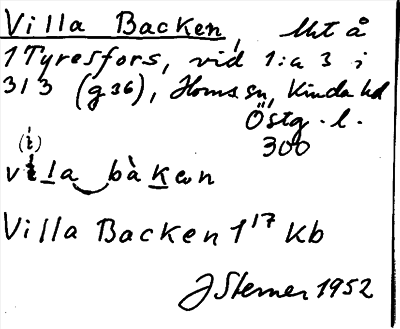 Villa Backen, lht å
1 Tyresfors, vid 1:a 3 i
313 (g 36), Horns sn, Kinda hd
Östg. l.
300
(i)
villa bàken
Villa Backen 1¹⁷ Kb
J Sterner 1952